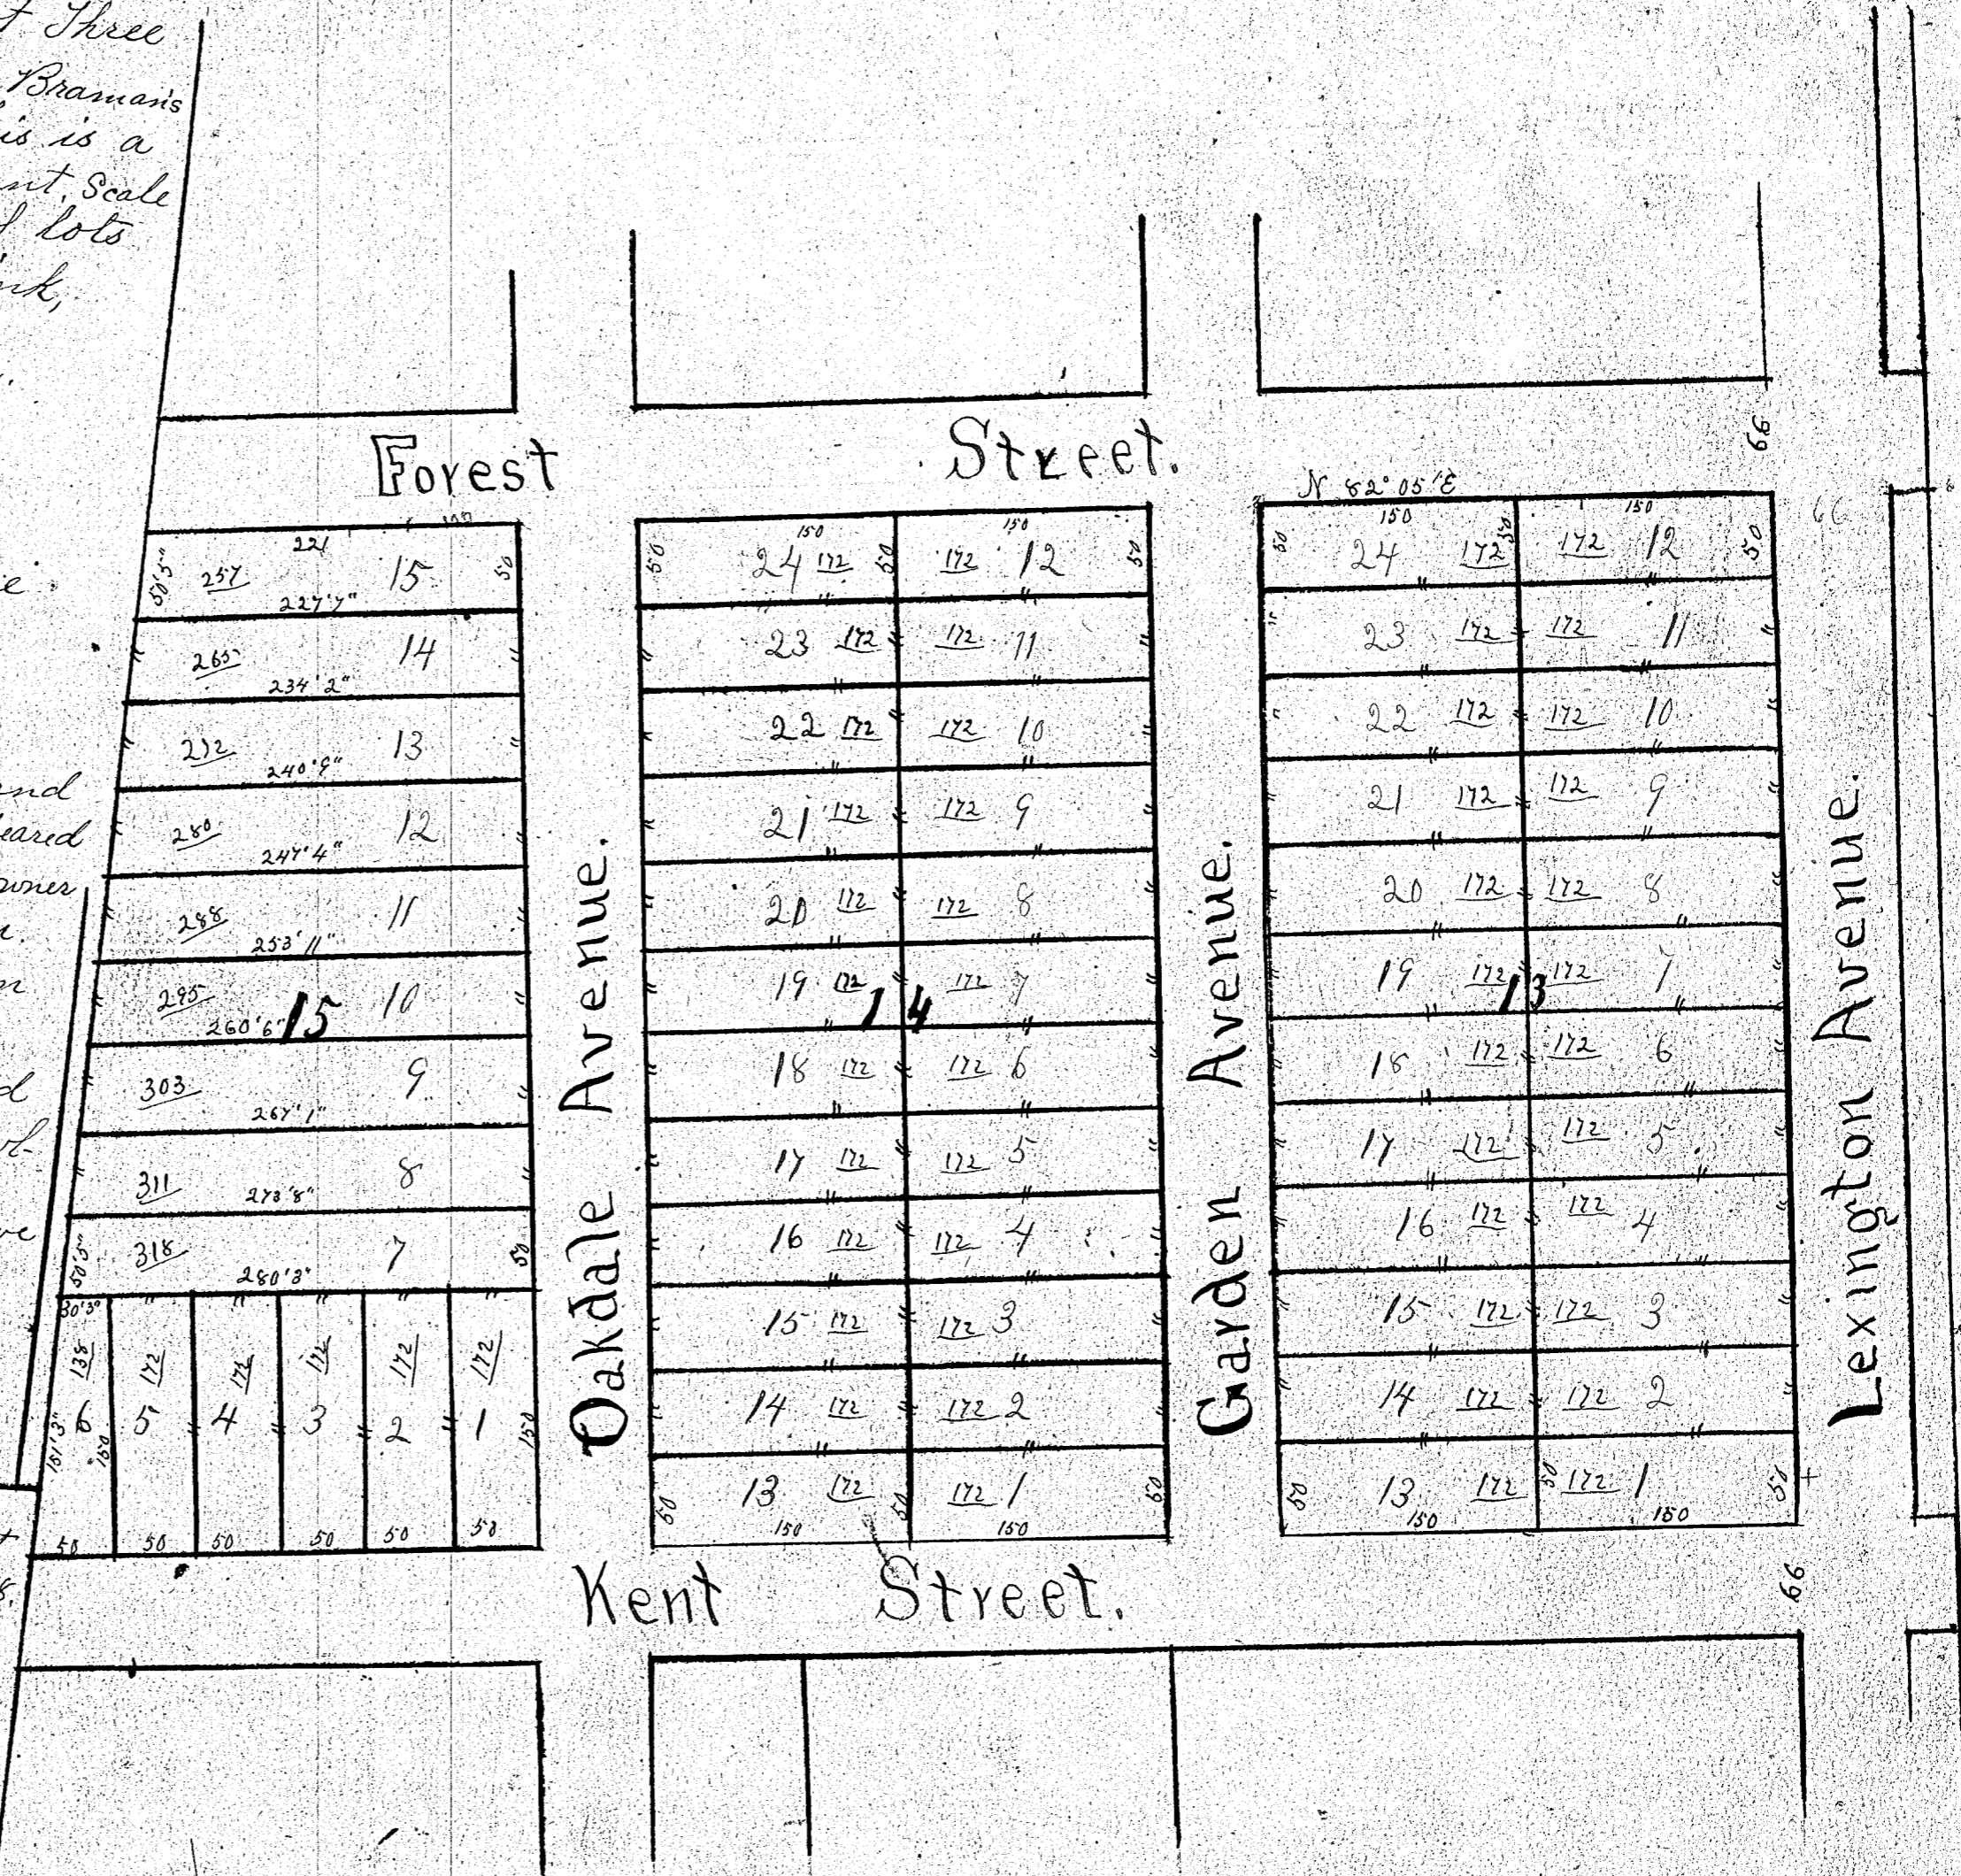 Three
Braman's
is is a
Scale
lots
Forest Street.
66
N 82° 05' E
66
221
50'5"
257
15
50
227'7"
265
14
234'2"
272
13
240'9"
280
12
247'4"
288
11
253'11"
295
10
260'6"
15
303
9
267'1"
311
8
273'8"
50'5"
318
7
50
280'3"
30'3"
138
172
172
172
172
172
6
5
4
3
2
1
151'3"
150
150
50
50
50
50
50
50
Oakdale Avenue.
150
150
50
24 172
50
172 12
50
23 172
172 11
22 172
172 10
21 172
172 9
20 172
172 8
19 172
172 7
14
18 172
172 6
17 172
172 5
16 172
172 4
15 172
172 3
14 172
172 2
50
13 172
50
172 1
50
150
150
Garden Avenue.
150
150
50
24 172
50
172 12
50
23 172
172 11
22 172
172 10
21 172
172 9
20 172
172 8
19 172
172 7
13
18 172
172 6
17 172
172 5
16 172
172 4
15 172
172 3
14 172
172 2
50
13 172
50
172 1
50
150
150
Lexington Avenue.
Kent Street.
66